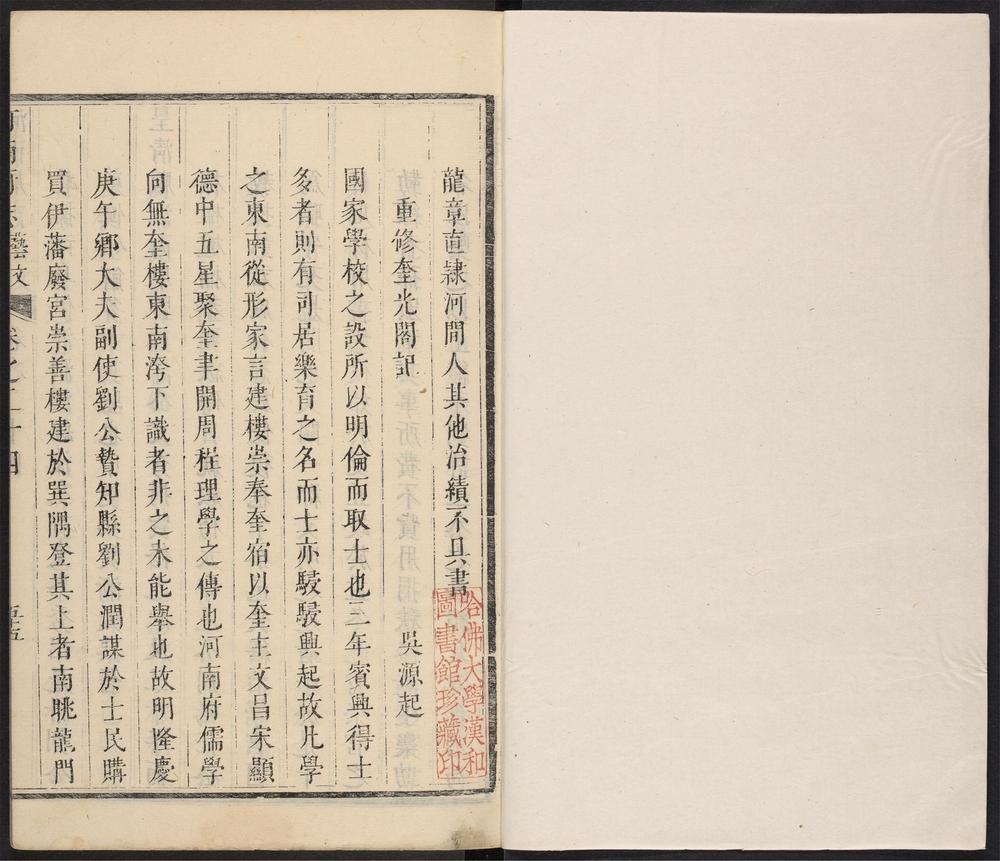 龍章直隸河間人其他治績不具書
重修奎光閣記
吳源起
國家學校之設所以明倫而取士也三年賓興得士
多者則有司居樂育之名而士亦駸駸興起故凡學
之東南從形家言建樓崇奉奎宿以奎主文昌宋顯
德中五星聚奎聿開周程理學之傳也河南府儒學
向無奎樓東南洿下識者非之未能舉也故明隆慶
庚午鄉大夫副使劉公贄知縣劉公潤謀於士民購
買伊藩廢宮崇善樓建於巽隅登其上者南眺龍門
藝文
卷之二十四
哈佛大學漢和
圖書館珍藏印